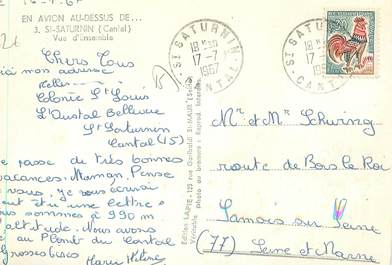 EN AVION AU-DESSUS DE...
3. St-SATURNIN (Cantal)
Vue d'ensemble
Chers Tous
ici mon adresse
Colonie St Louis
L'Oustal Bellevue
St Saturnin
Cantal (15)
passe de très bonnes
vacances. Maman Pense
vous, je vous écrirai
une lettre
nous sommes à 990 m
altitude. Nous avons
au Plomb du Cantal
Grosses bises
Marie Hélène
Edition LAPIE - 123 rue Garibaldi St-MAUR (Seine)
Véritable Photo au bromure - Reprod. Interdite
St SATURNIN
17-7
1967
CANTAL
St SATURNIN
17-7
CANTAL
Mr et Mme Schwing
route de Bois le Roi
Samois sur Seine
(77) Seine et Marne